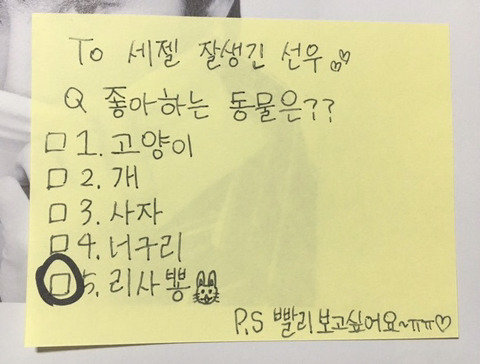 To 세젤 잘생긴 선우
Q 좋아하는 동물은??
1. 고양이
2. 개
3. 사자
4. 너구리
5. 리사뿅
P.S 빨리 보고싶어요~ㅠㅠ♡